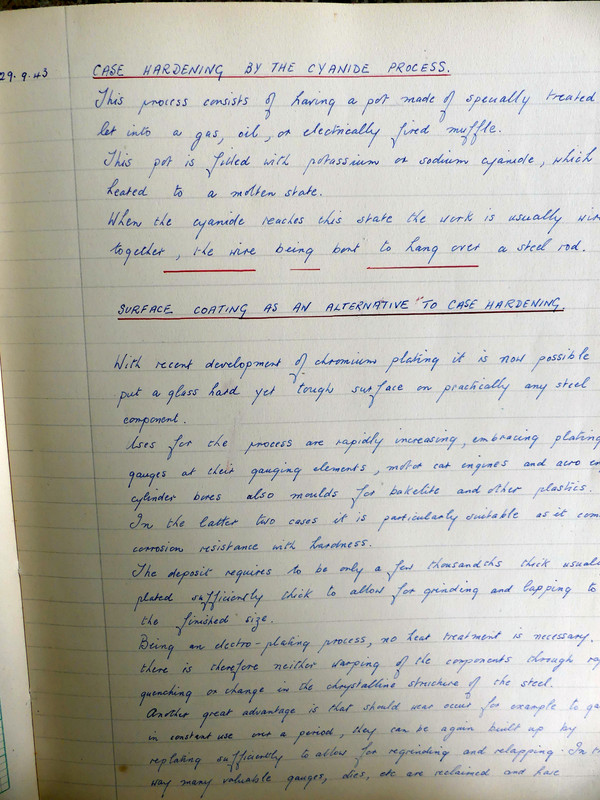 29.9.43
CASE HARDENING BY THE CYANIDE PROCESS.
This process consists of having a pot made of specially treated
let into a gas, oil, or electrically fired muffle.
This pot is filled with potassium or sodium cyanide, which
heated to a molten state.
When the cyanide reaches this state the work is usually wir
together, the wire being bent to hang over a steel rod.
SURFACE COATING AS AN ALTERNATIVE TO CASE HARDENING.
With recent development of chromium plating it is now possible
put a glass hard yet tough surface on practically any steel
component.
Uses for the process are rapidly increasing, embracing plating
gauges at their gauging elements, motor car engines and aero en
cylinder bores also moulds for bakelite and other plastics.
In the latter two cases it is particularly suitable as it com
corrosion resistance with hardness.
The deposit requires to be only a few thousandths thick usual
plated sufficiently thick to allow for grinding and lapping to
the finished size.
Being an electro-plating process, no heat treatment is necessary.
there is therefore neither warping of the components through ra
quenching or change in the chrystalline structure of the steel.
Another great advantage is that should wear occur for example to ga
in constant use over a period, they can be again built up by
replating sufficiently to allow for regrinding and relapping. In
way many valuable gauges, dies, etc are reclaimed and have